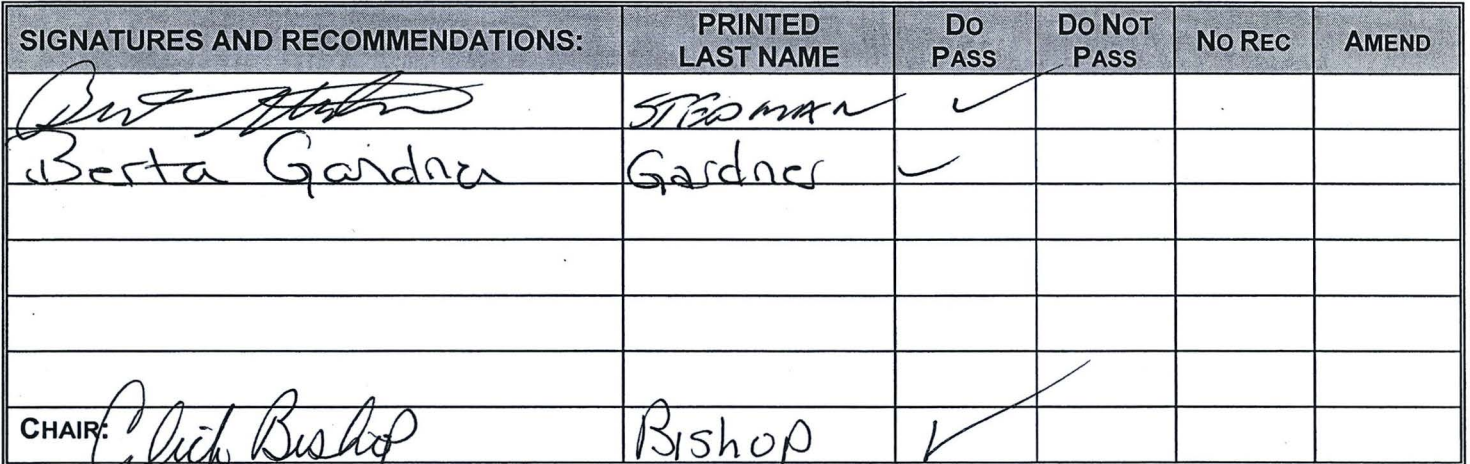 SIGNATURES AND RECOMMENDATIONS: PRINTED LAST NAME DO PASS DO NOT PASS NO REC AMEND
Bert Stedman STEDMAN ✓
Berta Gardner Gardner ✓
CHAIR: Click Bishop Bishop ✓